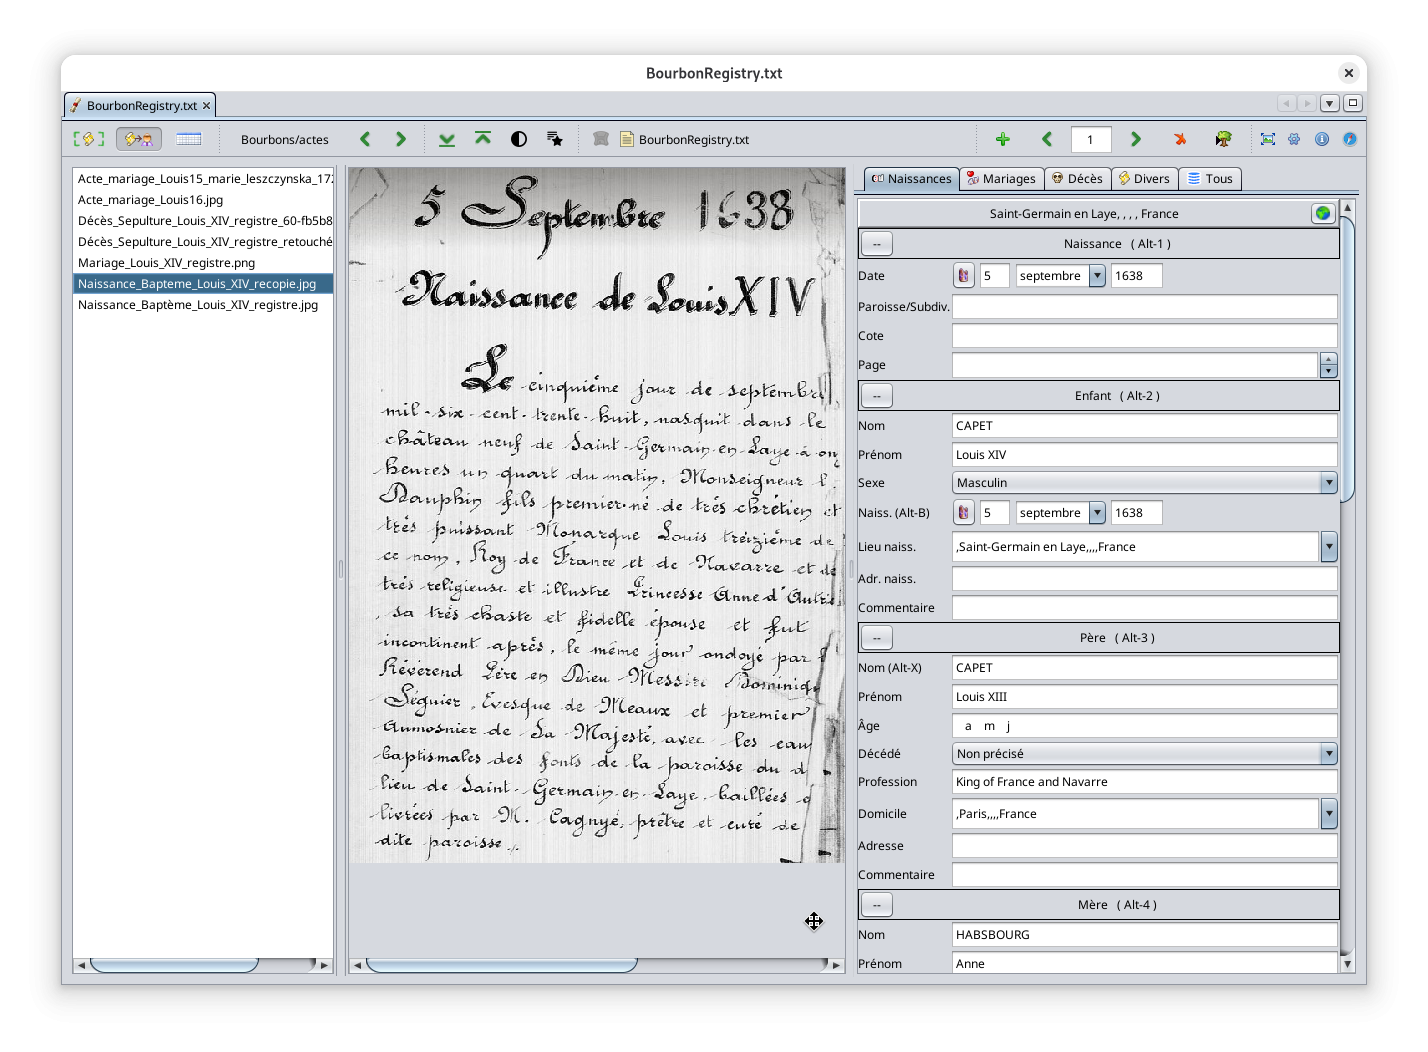 BourbonRegistry.txt
BourbonRegistry.txt
Bourbons/actes
BourbonRegistry.txt
1
Acte_mariage_Louis15_marie_leszczynska_172
Acte_mariage_Louis16.jpg
Décès_Sepulture_Louis_XIV_registre_60-fb5b8
Décès_Sepulture_Louis_XIV_registre_retouché
Mariage_Louis_XIV_registre.png
Naissance_Bapteme_Louis_XIV_recopie.jpg
Naissance_Baptème_Louis_XIV_registre.jpg
5 Septembre 1638
Naissance de Louis XIV
Le cinquiéme jour de septembre
mil-six-cent-trente-huit, nasquit dans le
château neuf de Saint-Germain-en-Laye à on
heures un quart du matin, Monseigneur l
Dauphin fils premier-né de trés chrétien et
trés puissant Monarque Louis treiziéme de
ce nom, Roy de France et de Navarre et de
trés religieuse et illustre Princesse Anne d'Autri
, sa trés chaste et fidelle épouse et fut
incontinent aprés, le même jour ondoyé par l
Révérend Pére en Dieu Messire Dominiqu
Séguier, Evesque de Meaux et premier
Aumosnier de Sa Majesté, avec les eau
baptismales des fonts de la paroisse du d
lieu de Saint-Germain-en-Laye, baillées e
livrées par M. Cagnyé, prêtre et curé de
dite paroisse.
Naissances
Mariages
Décès
Divers
Tous
Saint-Germain en Laye, , , , France
-- Naissance ( Alt-1 )
Date 5 septembre 1638
Paroisse/Subdiv.
Cote
Page
-- Enfant ( Alt-2 )
Nom CAPET
Prénom Louis XIV
Sexe Masculin
Naiss. (Alt-B) 5 septembre 1638
Lieu naiss. ,Saint-Germain en Laye,,,,France
Adr. naiss.
Commentaire
-- Père ( Alt-3 )
Nom (Alt-X) CAPET
Prénom Louis XIII
Âge a m j
Décédé Non précisé
Profession King of France and Navarre
Domicile ,Paris,,,,France
Adresse
Commentaire
-- Mère ( Alt-4 )
Nom HABSBOURG
Prénom Anne